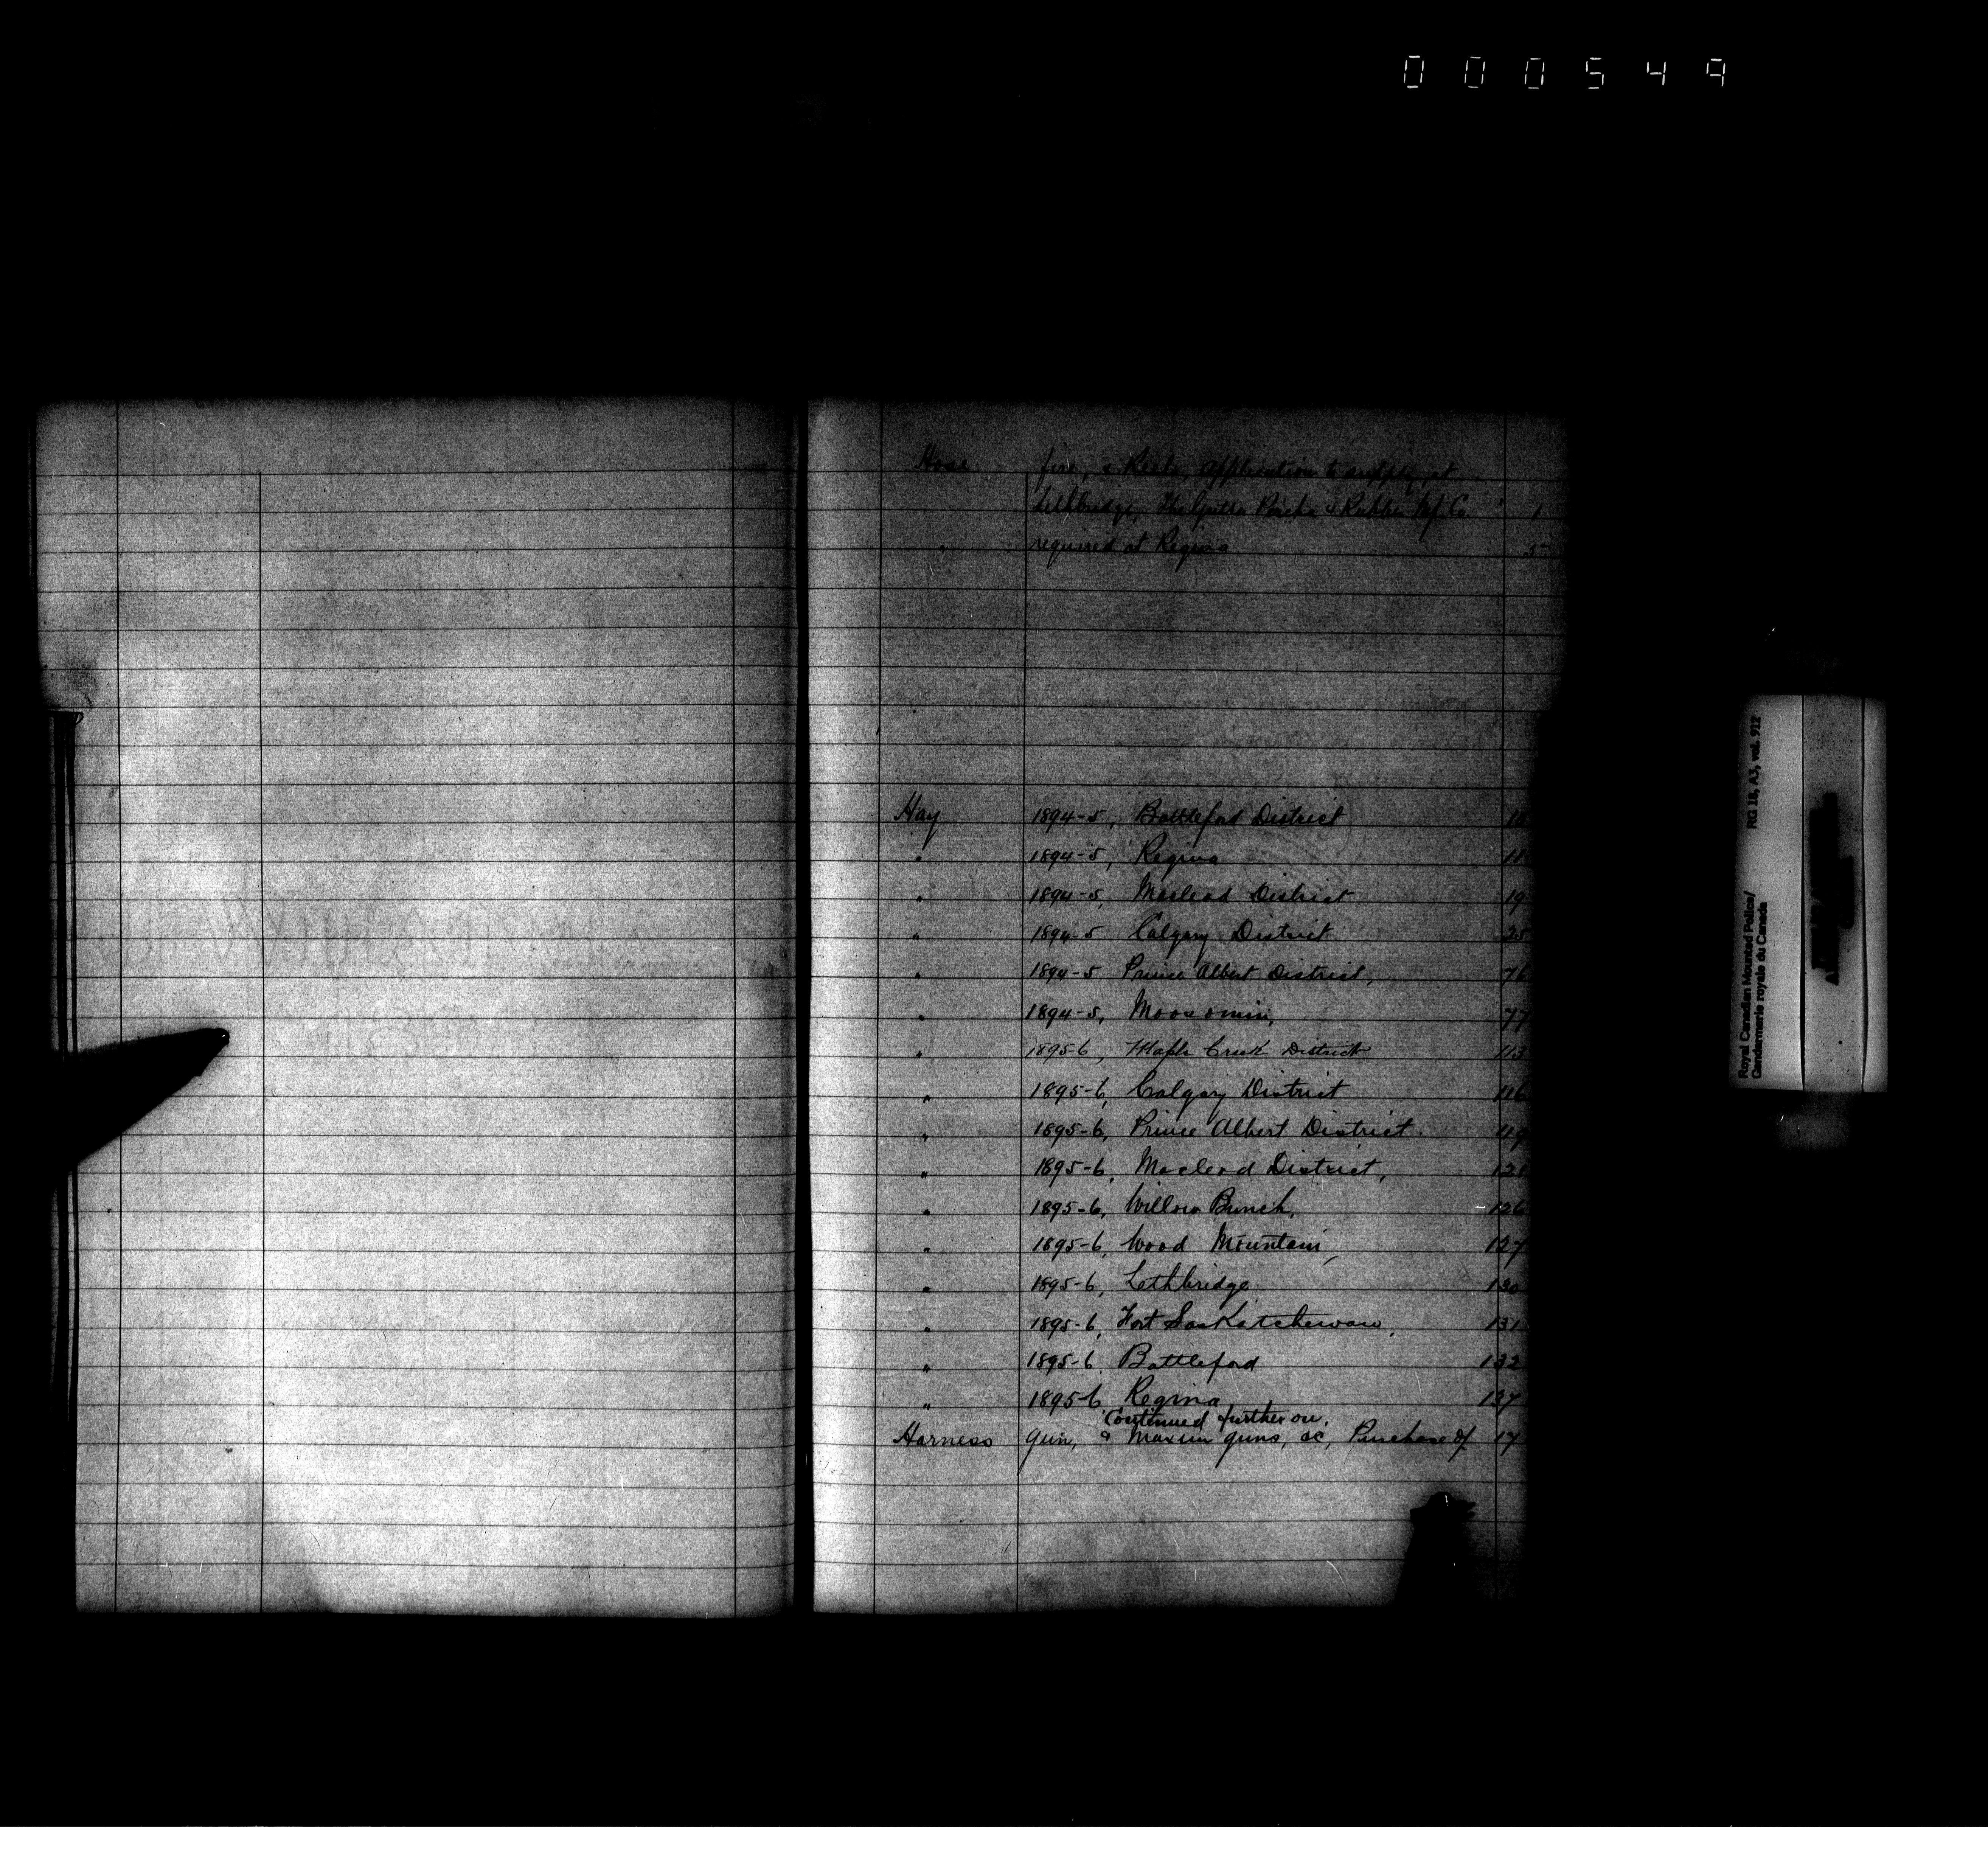 000549
Hose fire, & Reels, application to supply, at
Lethbridge, The Gutta Percha & Rubber Mf Co 1
" required at Regina 5
Hay 1894-5, Battleford District
" 1894-5, Regina
" 1894-5, Macleod District 19
" 1894-5 Calgary District 25
" 1894-5 Prince Albert District, 76
" 1894-5, Moosomin, 77
" 1895-6, Maple Creek District 113
" 1895-6, Calgary District 116
" 1895-6, Prince Albert District. 119
" 1895-6, Macleod District, 121
" 1895-6, Willow Bunch, 126
" 1895-6, Wood Mountain, 127
" 1895-6, Lethbridge 130
" 1895-6, Fort Saskatchewan, 131
" 1895-6 Battleford 132
" 1895-6 Regina 137
Continued further on,
Harness Gun, & Maxim guns, &c, Purchase of 17
Royal Canadian Mounted Police/ RG 18, A3, vol. 912
Gendarmerie royale du Canada